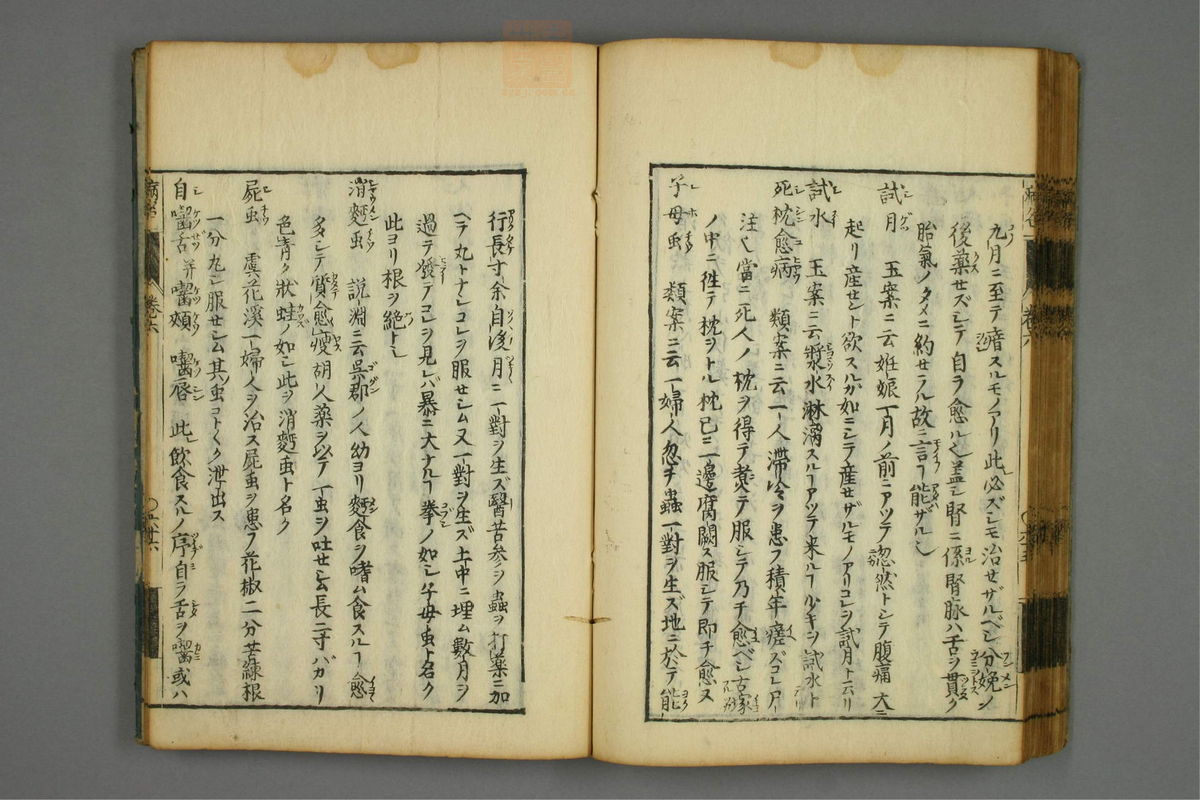 九月ニ至テ瘖スルモノアリ此必ズシモ治セザルベシ分娩ノ
後薬セズシテ自ラ愈ル也蓋シ腎ニ係腎脉ハ舌ヲ貫ク
胎氣ノタメニ約セラル故ニ言フ能ザル也
試月 玉案ニ云姙娠一月ノ前ニアツテ忽然トシテ腹痛大ニ
起リ産セント欲スルガ如ニシテ産セザルモノアリコレヲ試月ト云リ
試水 玉案ニ云漿水淋漓スルヿアツテ来ルヿ少キヲ試水ト
死枕愈病 類案ニ云一人滞冷ヲ患フ積年瘥ズコレ尸
注也當ニ死人ノ枕ヲ得テ煮テ服シテ乃チ愈ベシ古冢
ノ中ニ徃テ枕ヲトル枕已ニ一邊腐闕ス服シテ即チ愈又
子母虫 類案ニ云一婦人忽チ蟲一對ヲ生ズ地ニ於テ能
行長寸余自後月ニ一對ヲ生ズ醫苦参ヲ蟲ヲ打薬ニ加
ヘテ丸トナシコレヲ服セシム又一對ヲ生ズ土中ニ埋ム數月ヲ
過テ發テコレヲ見レバ暴ニ大ナルヿ拳ノ如シ子母虫ト名ク
此ヨリ根ヲ絶トシ
消麪虫 説淵ニ云呉郡ノ人幼ヨリ麪食ヲ嗜ム食スルヿ愈
多シテ質愈瘦胡人薬ヲ以テ一虫ヲ吐セシム長二寸バカリ
色青ク狀蛙ノ如シ此ヲ消麪虫ト名ク
屍虫 虞花溪一婦人ヲ治ス屍虫ヲ患フ花椒二分苦練根
一分丸シ服セシム其虫コトゝク泄出ス
自嚙舌并嚙頰 嚙唇 此飲食スルノ序自ラ舌ヲ嚙或ハ
卷六